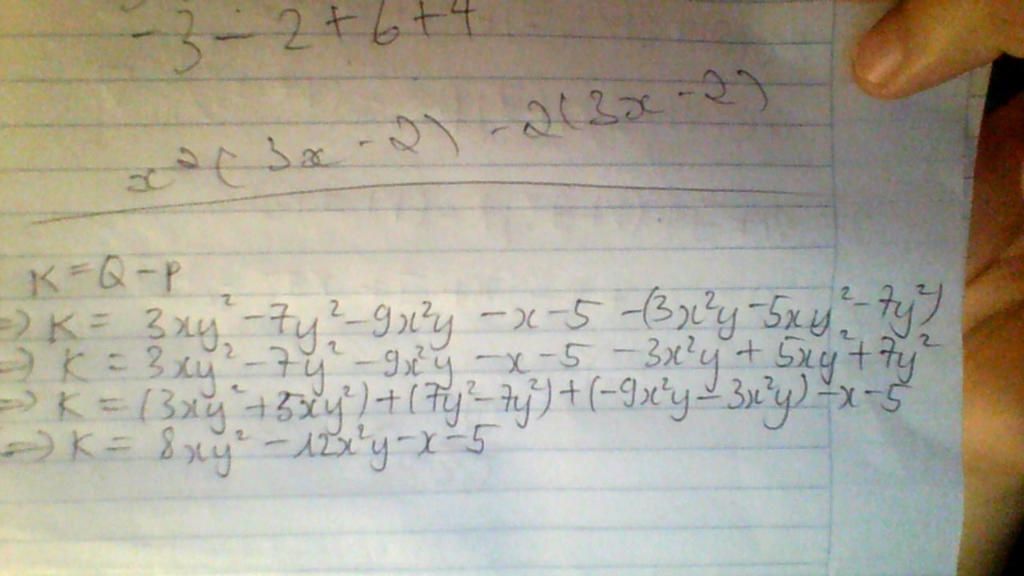 -3-2+6+4
x²(3x-2) -2(3x-2)
K=Q-P
=> K= 3xy²-7y²-9x²y -x-5 -(3x²y-5xy²-7y²)
=> K= 3xy²-7y²-9x²y -x-5 -3x²y+5xy²+7y²
=> K=(3xy²+5xy²)+(7y²-7y²)+(-9x²y-3x²y)-x-5
=> K= 8xy²-12x²y-x-5